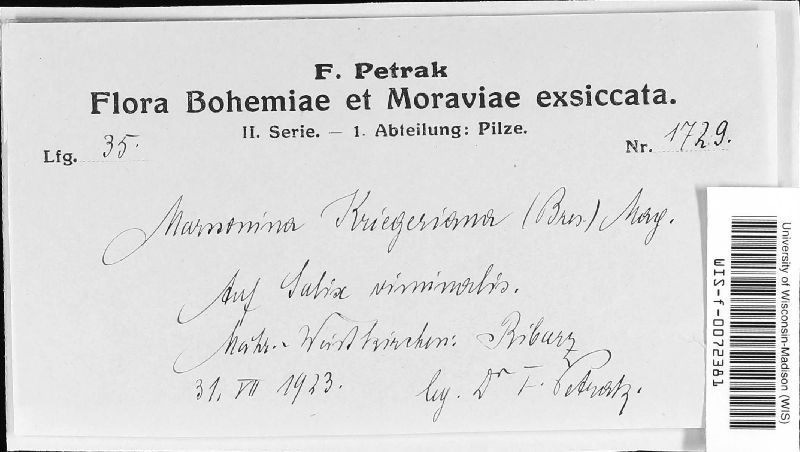 F. Petrak
Flora Bohemiae et Moraviae exsiccata.
II. Serie. — 1. Abteilung: Pilze.
Lfg. 35.
Nr. 1729.
Marssonina Kriegeriana (Bres.) Mag.
Auf Salix viminalis.
Mähr.-Weißkirchen: Ribarz
31. VII 1923. leg. Dr F. Petrak.
University of Wisconsin-Madison (WIS)
WIS-f-0072381